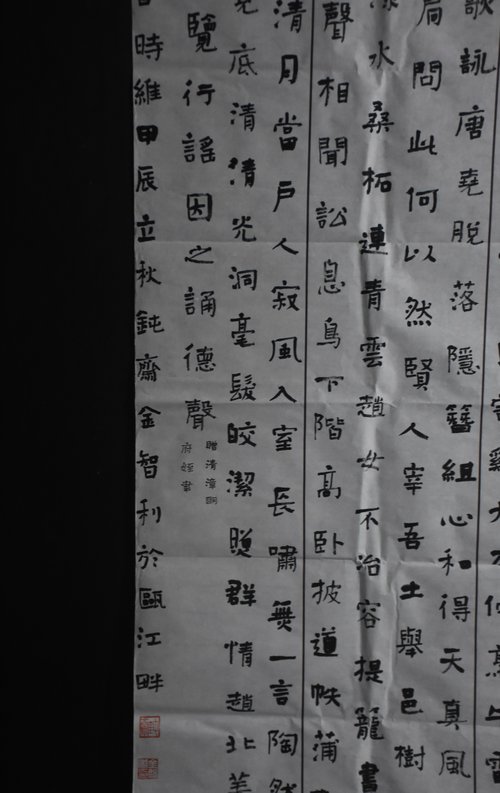 雞大刀佇烹牛雷
歌詠唐堯脫落隱簪組心和得天真風
扃問此何以然賢人宰吾土舉邑樹
綠水桑柘連青雲趙女不冶容提籠晝
聲相聞訟息鳥下階高臥披道帙蒲
清月當戶人寂風入室長嘯無一言陶然
見底清清光洞毫髮皎潔照群情趙北美
覽行謠因之誦德聲
贈清漳明
府姪聿
時維甲辰立秋鈍齋金智利於甌江畔